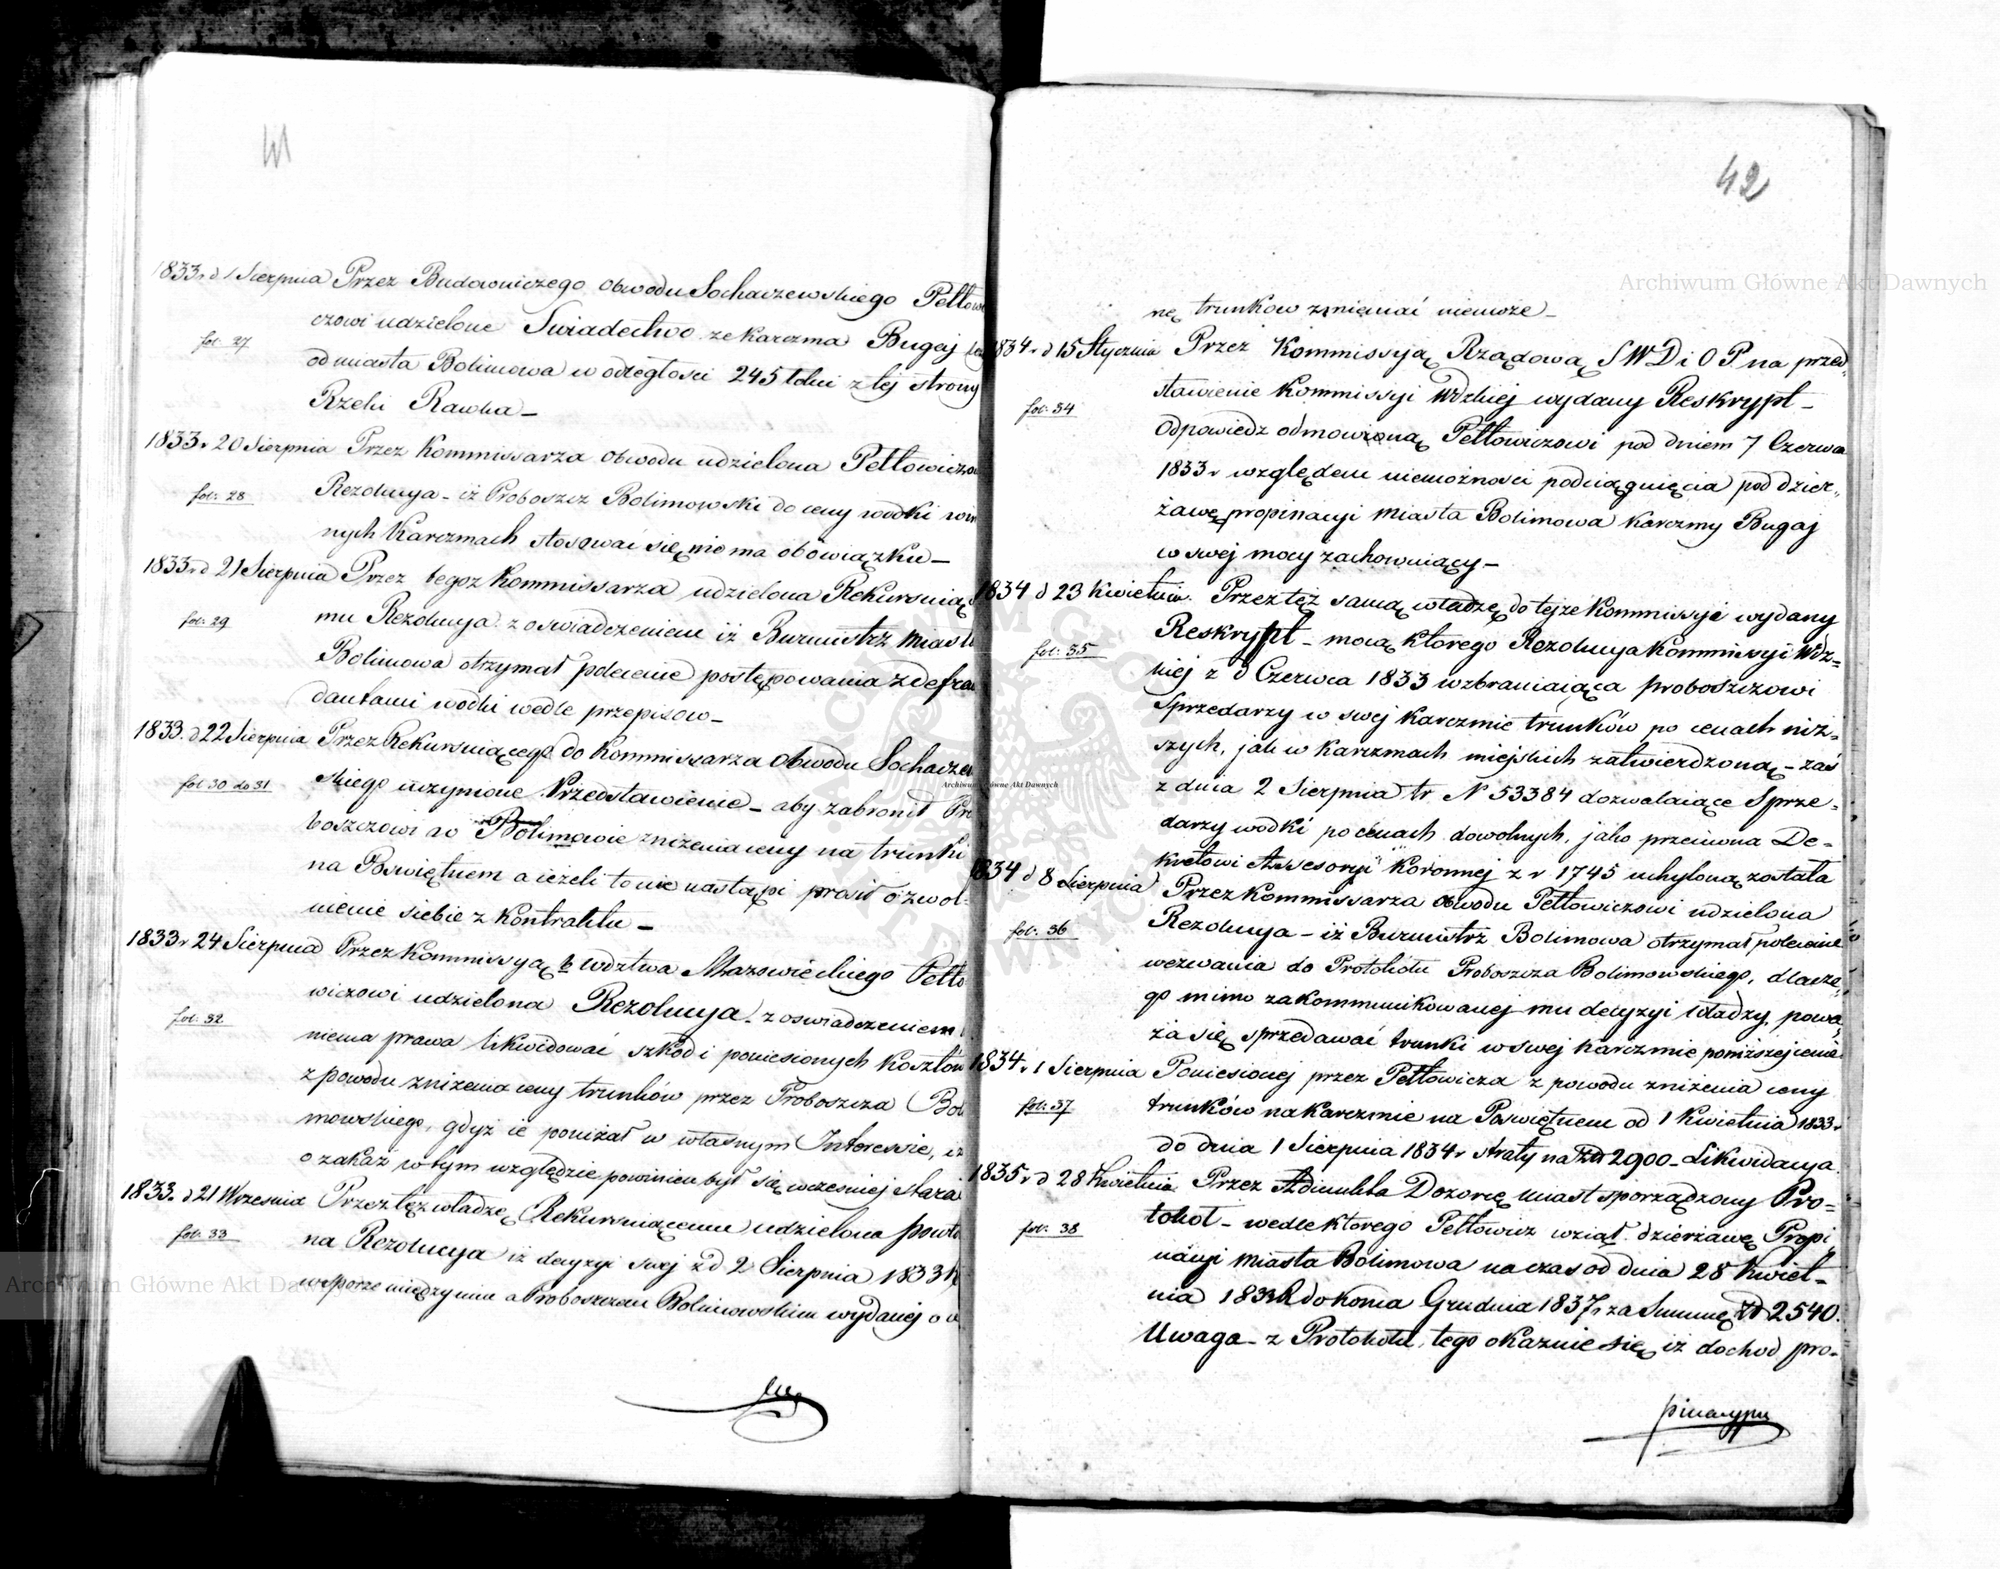 1833 r d 1 Sierpnia Przez Budowniczego obwodu Sochaczewskiego Petłowi
czowi udzielone Swiadectwo ze karczma Bugaj
fol: 27
od miasta Bolimowa w odległosci 245 łokci z tej strony
Rzeki Rawka –
1833 r 20 Sierpnia Przez Kommissarza obwodu udzielona Petłowiczow
fol: 28
Rezolucya – iż Proboszcz Bolimowski do ceny wodki w in
nych Karczmach stosować się niema obowiązku –
1833 r d 21 Sierpnia Przez tegoz Kommissarza udzielona Rekursuiące
fol: 29
mu Rezolucya z oswiadczeniem iż Burmistrz Miasta
Bolimowa otrzymał polecenie postępowania z defrau
dantami wodki wedle przepisow –
1833. d 22 Sierpnia Przez Rekursuiącego do Kommissarza obwodu Sochaczew
fol 30 do 31
skiego uczynione Przedstawienie – aby zabronił Pro
boszczowi w Bolimowie zniżenia ceny na trunki
na Poswiętnem a ieżeli to nie nastąpi prosił o zwol-
nienie siebie z Kontraktu –
1833 r 24 Sierpnia Przez Kommissyą Wdztwa Mazowieckiego Petło
wiczowi udzielona Rezolucya – z oswiadczeniem
fol: 32
niema prawa likwidować szkod i poniesionych kosztow
z powodu zniżenia ceny trunków przez Proboszcza Boli
mowskiego, gdyż ie poniżał w własnym Interessie, iż
o zakaz w tym względzie powinien był się wczesniej stara
1833. d 21 Wrzesnia Przez tęż władzę Rekursuiącemu udzielona powtó
fol: 33
na Rezolucya iż decyzyi swej z d 2 Sierpnia 1833 R
w sporze między nim a Proboszczem Bolimowskim wydanej o
42
nę trunkow zmięniać niemoże –
1834 r d 15 Stycznia Przez Kommissyą Rządową S W D i O P na przed
stawienie Kommissyi Wdzkiej wydany Reskrypt –
fol: 34
Odpowiedz odmowioną Petłowiczowi pod dniem 7 Czerwca
1833 r względem niemożnosci podciągnięcia pod dzier„
żawę propinacyi Miasta Bolimowa karczmy Bugaj
w swej mocy zachowuiący –
1834 d 23 Kwietnia. Przez tęż samą władzę do tejże Kommissyi wydany
Reskrypt – mocą ktorego Rezolucya Kommissyi Wdz=
fol: 35
kiej z d Czerwca 1833 wzbraniaiąca proboszczowi
Sprzedarzy w swej karczmie trunków po cenach niż=
szych, jak w karczmach miejskich zatwierdzoną – zaś
z dnia 2 Sierpnia tr N 53384 dozwalaiące Sprze=
darzy wodki po cenach dowolnych, jako przeciwna De=
kretowi Assesoryi Koronnej z r 1745 uchyloną została
1834 d 8 Sierpnia Przez Kommissarza obwodu Petłowiczowi udzielona
Rezolucya – iż Burmistrz Bolimowa otrzymał polecenie
fol: 36
wezwania do Protokołu Proboszcza Bolimowskiego, dlacze„
go mimo zakommunikowanej mu decyzyi władzy, powa„
ża się sprzedawać trunki w swej karczmie poniższej cenie
1834 r 1 Sierpnia Poniesionej przez Petłowicza z powodu zniżenia ceny
fol: 37
trunków na karczmie na Poswiętnem od 1 Kwietnia 1833 r
do dnia 1 Sierpnia 1834 r straty na złł 2900 – Likwidacya.
1835 r d 28 Kwietnia Przez Adiunkta Dozorcę miast sporządzony Pro=
fol: 38
tokoł – wedle ktorego Petłowicz wziął dzierżawę Propi
nacyi miasta Bolimowa na czas od dnia 28 Kwiet–
nia 1833 R do końca Grudnia 1837 r za Summę zł 2540.
Uwaga – z Protokołu tego okazuie się, iż dochod pro–
pinacyjny
Archiwum Główne Akt Dawnych
Archiwum Główne Akt Dawnych
Archiwum Główne Akt Dawnych